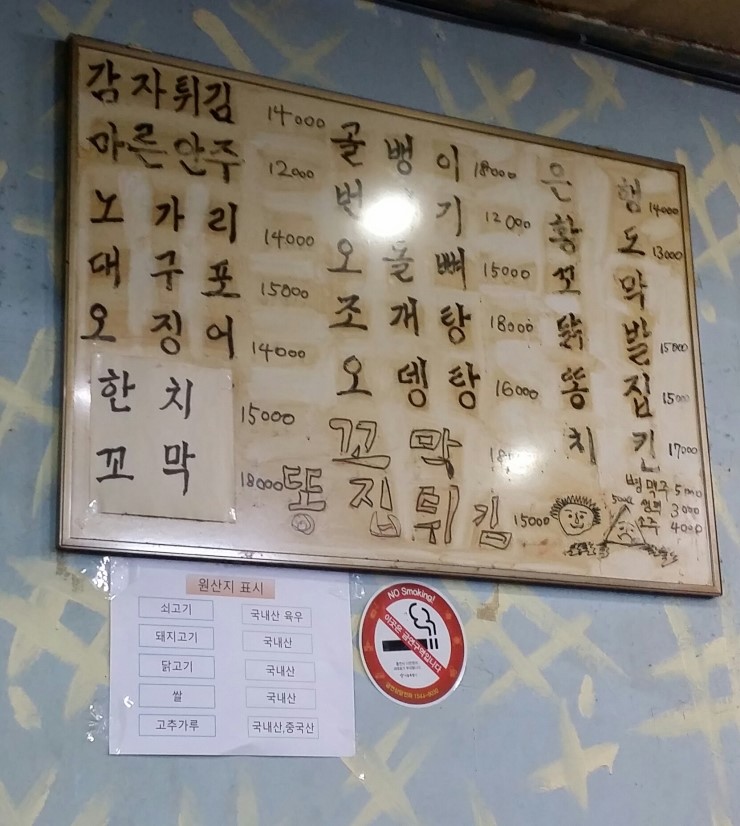 감자튀김 14000
마른안주 12000
노가리 14000
대구포 15000
오징어 14000
한치 15000
꼬막 18000
골뱅이 18000
번 기 12000
오돌뼈 15000
조개탕 18000
오뎅탕 16000
꼬막
똥집튀김 15000
은행 14000
황도 13000
꼬막
닭발 15000
똥집 15000
치킨 17000
병맥주 5000
3000
소주 4000
5000
원산지 표시
쇠고기 국내산 육우
돼지고기 국내산
닭고기 국내산
쌀 국내산
고추가루 국내산,중국산
NO Smoking!
이곳은 금연구역입니다